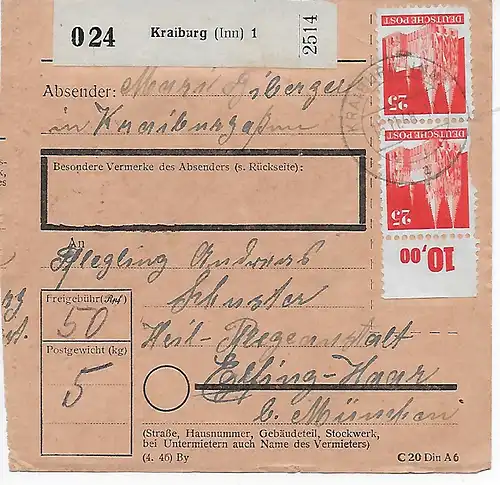 024
Kraiburg (Inn) 1
2514
DEUTSCHE POST
25
DEUTSCHE POST
25
10,00
Absender: Mari
in Kraiburg a/Inn
Besondere Vermerke des Absenders (s. Rückseite):
An
Pflegling Andreas
Schuster
Heil- Pflegeanstalt
Eglfing-Haar
b. München
Freigebühr (Rpf)
50
Postgewicht (kg)
5
(Straße, Hausnummer, Gebäudeteil, Stockwerk,
bei Untermietern auch Name des Vermieters)
(4. 46) By
C 20 Din A 6